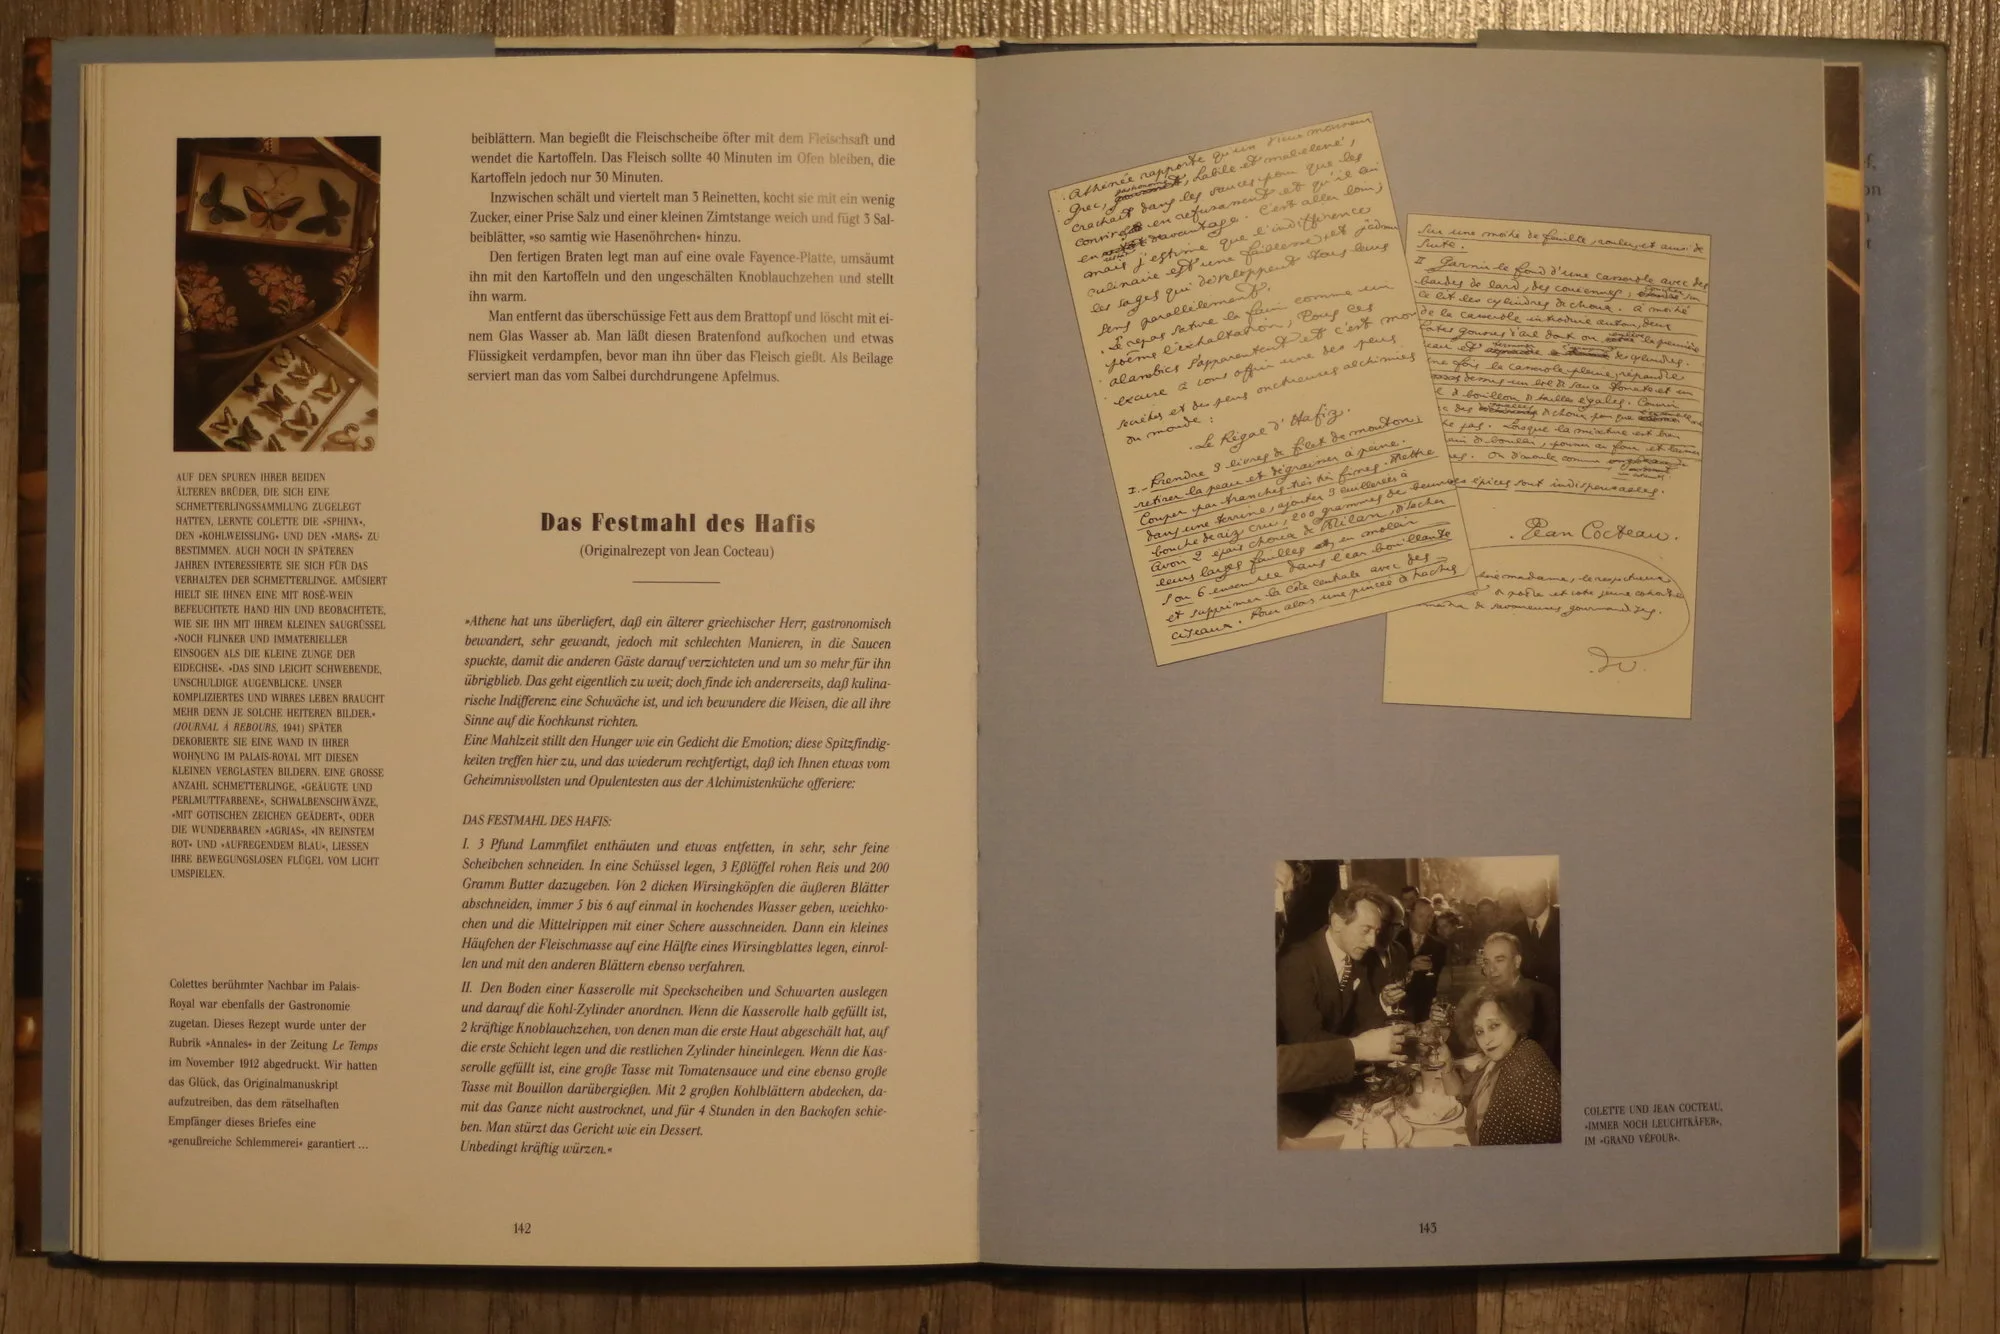 beiblättern. Man begießt die Fleischscheibe öfter mit dem Fleischsaft und
wendet die Kartoffeln. Das Fleisch sollte 40 Minuten im Ofen bleiben, die
Kartoffeln jedoch nur 30 Minuten.
Inzwischen schält und viertelt man 3 Reinetten, kocht sie mit ein wenig
Zucker, einer Prise Salz und einer kleinen Zimtstange weich und fügt 3 Sal-
beiblätter, »so samtig wie Hasenöhrchen« hinzu.
Den fertigen Braten legt man auf eine ovale Fayence-Platte, umsäumt
ihn mit den Kartoffeln und den ungeschälten Knoblauchzehen und stellt
ihn warm.
Man entfernt das überschüssige Fett aus dem Brattopf und löscht mit ei-
nem Glas Wasser ab. Man läßt diesen Bratenfond aufkochen und etwas
Flüssigkeit verdampfen, bevor man ihn über das Fleisch gießt. Als Beilage
serviert man das vom Salbei durchdrungene Apfelmus.
AUF DEN SPUREN IHRER BEIDEN
ÄLTEREN BRÜDER, DIE SICH EINE
SCHMETTERLINGSSAMMLUNG ZUGELEGT
HATTEN, LERNTE COLETTE DIE »SPHINX«,
DEN »KOHLWEISSLING« UND DEN »MARS« ZU
BESTIMMEN. AUCH NOCH IN SPÄTEREN
JAHREN INTERESSIERTE SIE SICH FÜR DAS
VERHALTEN DER SCHMETTERLINGE. AMÜSIERT
HIELT SIE IHNEN EINE MIT ROSÉ-WEIN
BEFEUCHTETE HAND HIN UND BEOBACHTETE,
WIE SIE IHN MIT IHREM KLEINEN SAUGRÜSSEL
»NOCH FLINKER UND IMMATERIELLER
EINSOGEN ALS DIE KLEINE ZUNGE DER
EIDECHSE«. »DAS SIND LEICHT SCHWEBENDE,
UNSCHULDIGE AUGENBLICKE. UNSER
KOMPLIZIERTES UND WIRRES LEBEN BRAUCHT
MEHR DENN JE SOLCHE HEITEREN BILDER.«
(JOURNAL À REBOURS, 1941) SPÄTER
DEKORIERTE SIE EINE WAND IN IHRER
WOHNUNG IM PALAIS-ROYAL MIT DIESEN
KLEINEN VERGLASTEN BILDERN. EINE GROSSE
ANZAHL SCHMETTERLINGE, »GEÄUGTE UND
PERLMUTTFARBENE«, SCHWALBENSCHWÄNZE,
»MIT GOTISCHEN ZEICHEN GEÄDERT«, ODER
DIE WUNDERBAREN »AGRIAS«, »IN REINSTEM
ROT« UND »AUFREGENDEM BLAU«, LIESSEN
IHRE BEWEGUNGSLOSEN FLÜGEL VOM LICHT
UMSPIELEN.
Colettes berühmter Nachbar im Palais-
Royal war ebenfalls der Gastronomie
zugetan. Dieses Rezept wurde unter der
Rubrik »Annales« in der Zeitung Le Temps
im November 1912 abgedruckt. Wir hatten
das Glück, das Originalmanuskript
aufzutreiben, das dem rätselhaften
Empfänger dieses Briefes eine
»genußreiche Schlemmerei« garantiert ...
Das Festmahl des Hafis
(Originalrezept von Jean Cocteau)
»Athene hat uns überliefert, daß ein älterer griechischer Herr, gastronomisch
bewandert, sehr gewandt, jedoch mit schlechten Manieren, in die Saucen
spuckte, damit die anderen Gäste darauf verzichteten und um so mehr für ihn
übrigblieb. Das geht eigentlich zu weit; doch finde ich andererseits, daß kulina-
rische Indifferenz eine Schwäche ist, und ich bewundere die Weisen, die all ihre
Sinne auf die Kochkunst richten.
Eine Mahlzeit stillt den Hunger wie ein Gedicht die Emotion; diese Spitzfindig-
keiten treffen hier zu, und das wiederum rechtfertigt, daß ich Ihnen etwas vom
Geheimnisvollsten und Opulentesten aus der Alchimistenküche offeriere:
DAS FESTMAHL DES HAFIS:
I. 3 Pfund Lammfilet enthäuten und etwas entfetten, in sehr, sehr feine
Scheibchen schneiden. In eine Schüssel legen, 3 Eßlöffel rohen Reis und 200
Gramm Butter dazugeben. Von 2 dicken Wirsingköpfen die äußeren Blätter
abschneiden, immer 5 bis 6 auf einmal in kochendes Wasser geben, weichko-
chen und die Mittelrippen mit einer Schere ausschneiden. Dann ein kleines
Häufchen der Fleischmasse auf eine Hälfte eines Wirsingblattes legen, einrol-
len und mit den anderen Blättern ebenso verfahren.
II. Den Boden einer Kasserolle mit Speckscheiben und Schwarten auslegen
und darauf die Kohl-Zylinder anordnen. Wenn die Kasserolle halb gefüllt ist,
2 kräftige Knoblauchzehen, von denen man die erste Haut abgeschält hat, auf
die erste Schicht legen und die restlichen Zylinder hineinlegen. Wenn die Kas-
serolle gefüllt ist, eine große Tasse mit Tomatensauce und eine ebenso große
Tasse mit Bouillon darübergießen. Mit 2 großen Kohlblättern abdecken, da-
mit das Ganze nicht austrocknet, und für 4 Stunden in den Backofen schie-
ben. Man stürzt das Gericht wie ein Dessert.
Unbedingt kräftig würzen.«
142
Athénée rapporte qu'un vieux monsieur
Grec, habile et mal élevé,
crachait dans les sauces pour que les
mais j'estime que l'indifférence
culinaire est une faiblesse et j'admire
les sages qui développent tous leurs
sens parallèlement.
Le repas satire la faim comme un
poème l'exhaltation, tous ces
alambics s'apparentent et c'est mon
excuse à vous offrir une des plus
secrètes et des plus onctueuses alchimies
du monde :
Le Régal d'Hafiz.
I. Prendre 3 livres de filet de mouton,
retirer la peau et dégraisser à peine.
Couper par tranches très très fines. Mettre
dans une terrine, ajouter 3 cuillerées à
bouche de riz cru, 200 grammes de beurre
Avoir 2 épais choux de Milan, détacher
leurs larges feuilles et, en mettre
5 ou 6 ensemble dans l'eau bouillante
et supprimer la côte centrale avec des
ciseaux. Pour alors une pincée d'hachis
sur une moitié de feuille, roulez, et ainsi de
suite.
II Garnir le fond d'une casserole avec des
bardes de lard, des couennes,
ce lit les cylindres de choux. à moitié
de la casserole introduire autour, deux
des cylindres.
une fois la casserole pleine, répandre
dessus un bol de sauce tomate et un
de bouillon de tailles égales. Couvrir
pas. Lorsque la mixture est bien
en train de bouillir, pousser au four et laisser
On démoule comme
épices sont indispensables.
Jean Cocteau.
madame, le respectueux
de savoureuses gourmandises.
COLETTE UND JEAN COCTEAU,
»IMMER NOCH LEUCHTKÄFER«,
IM »GRAND VÉFOUR«.
143